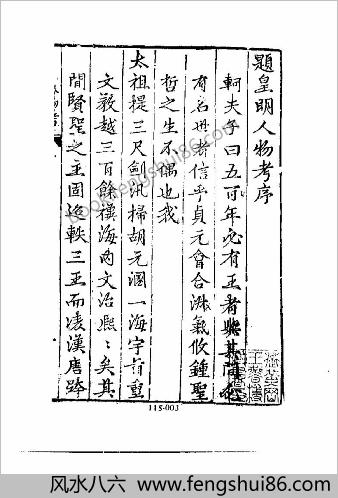 題皇明人物考序
軻夫子曰五百年必有王者興其間必
有名世者信乎貞元會合淋氣攸鍾聖
哲之生不偶也我
太祖提三尺劍汛掃胡元涸一海宇首重
文教越三百餘禩海內文治熙〻矣其
間賢聖之主固追軼三王而凌漢唐跨
115-003
book.fengshui86.com
风水八六 - www.fengshui86.com